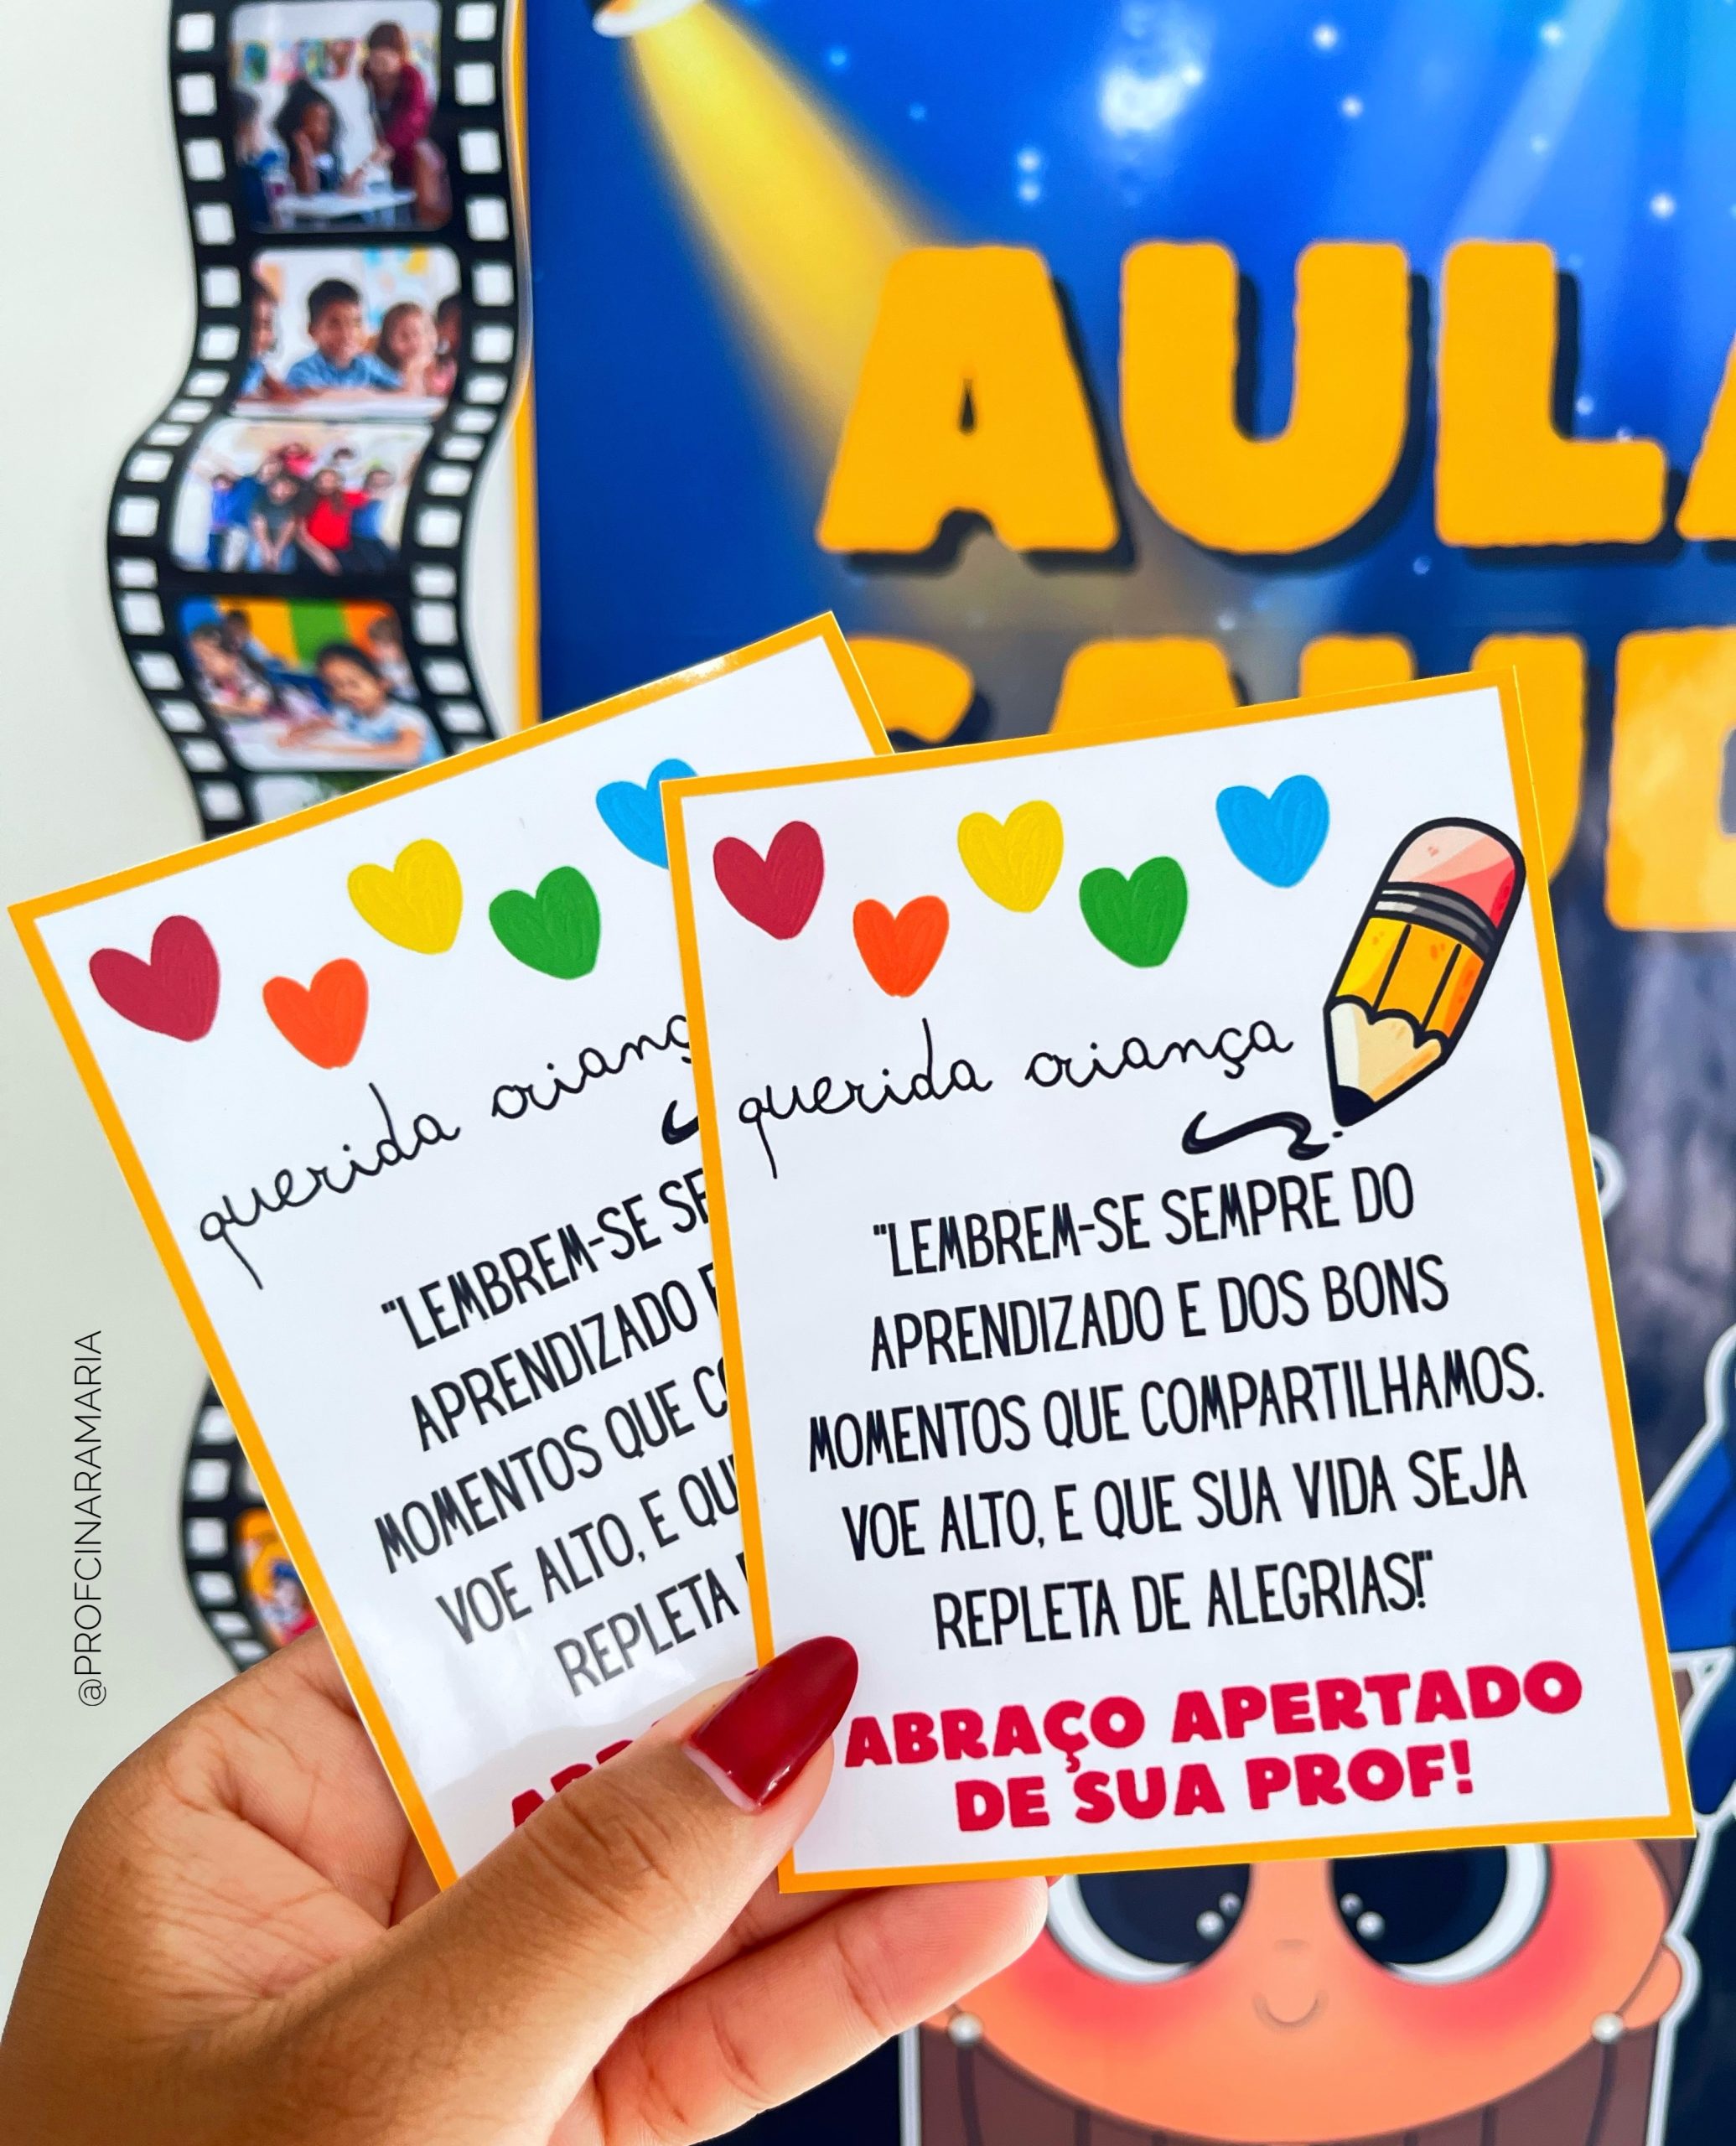 AULA
querida criança
"LEMBREM-SE SEMPRE DO
APRENDIZADO E DOS BONS
MOMENTOS QUE COMPARTILHAMOS.
VOE ALTO, E QUE SUA VIDA SEJA
REPLETA DE ALEGRIAS!"
ABRAÇO APERTADO
DE SUA PROF!
querida crianç
"LEMBREM-SE SE
APRENDIZADO E
MOMENTOS QUE CO
VOE ALTO, E QU
REPLETA
@PROFCINARAMARIA